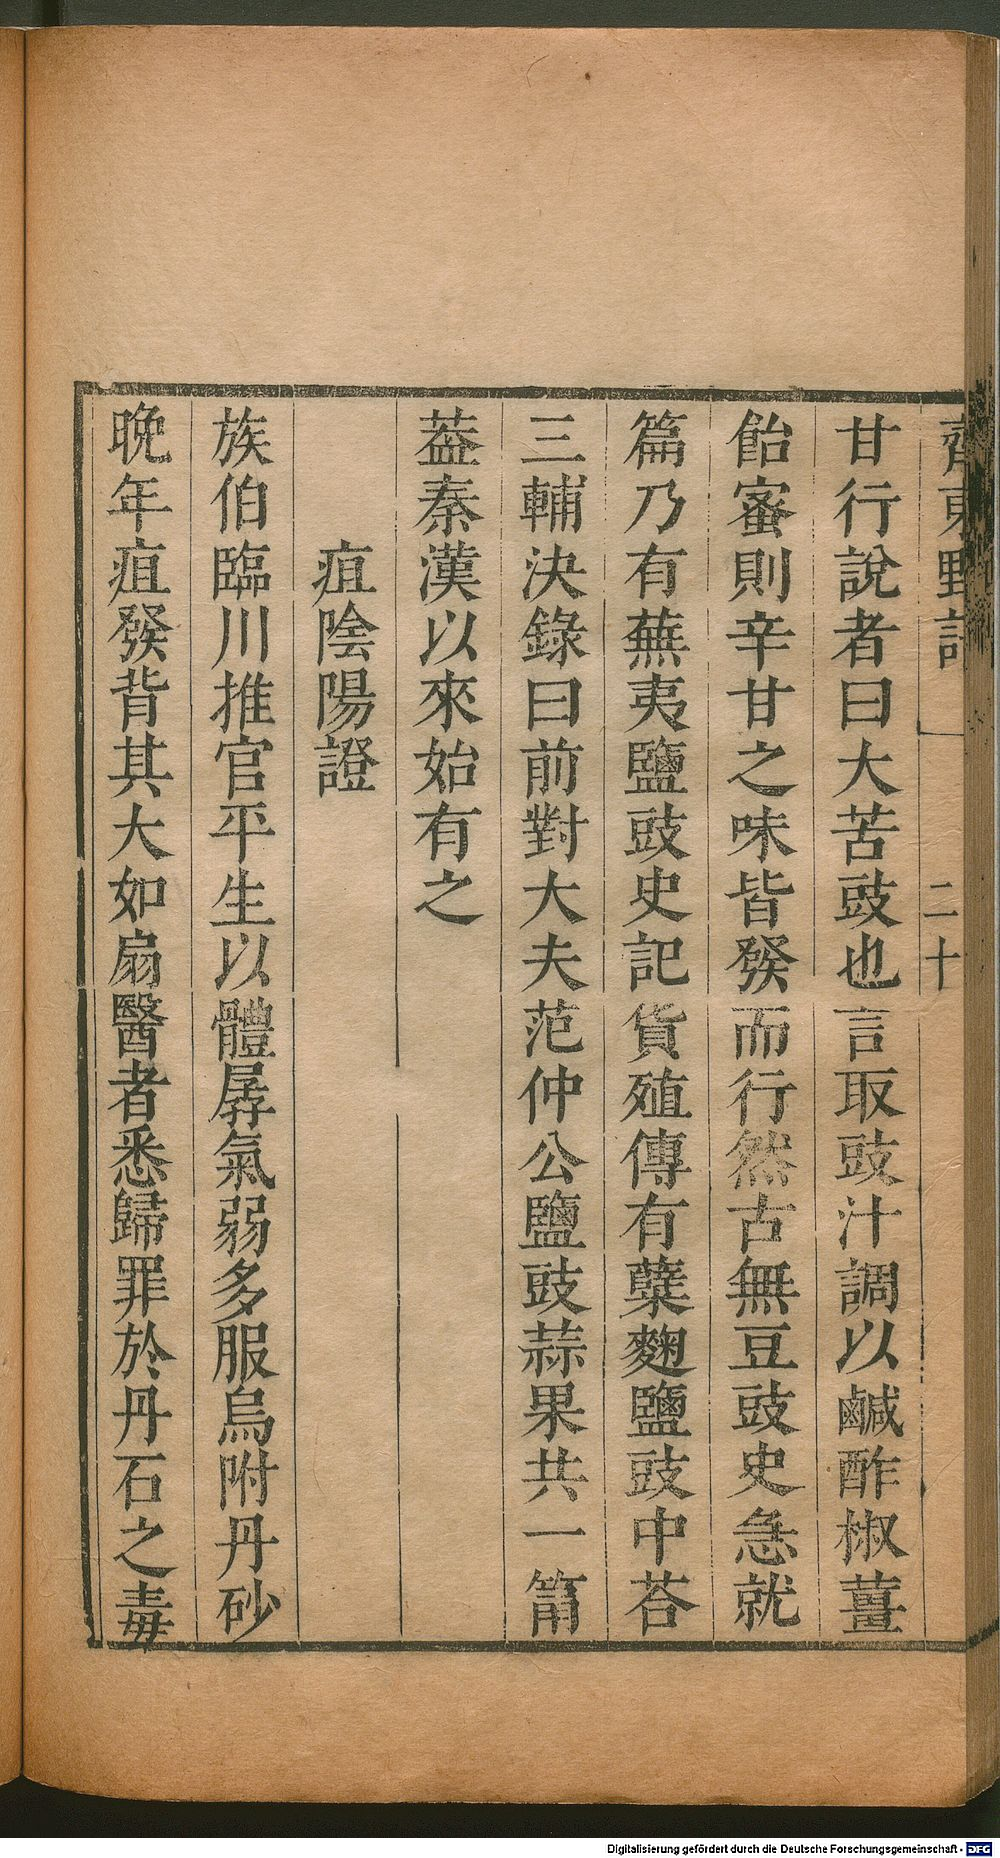 齊東野語
二十
甘行說者曰大苦豉也言取豉汁調以鹹酢椒薑
飴蜜則辛甘之味皆發而行然古無豆豉史急就
篇乃有蕪夷鹽豉史記貨殖傳有糵麴鹽豉中荅
三輔決錄曰前對大夫范仲公鹽豉蒜果共一筩
葢秦漢以來始有之
疽陰陽證
族伯臨川推官平生以體孱氣弱多服烏附丹砂
晚年疽發背其大如扇醫者悉歸罪於丹石之毒
Digitalisierung gefördert durch die Deutsche Forschungsgemeinschaft - DFG